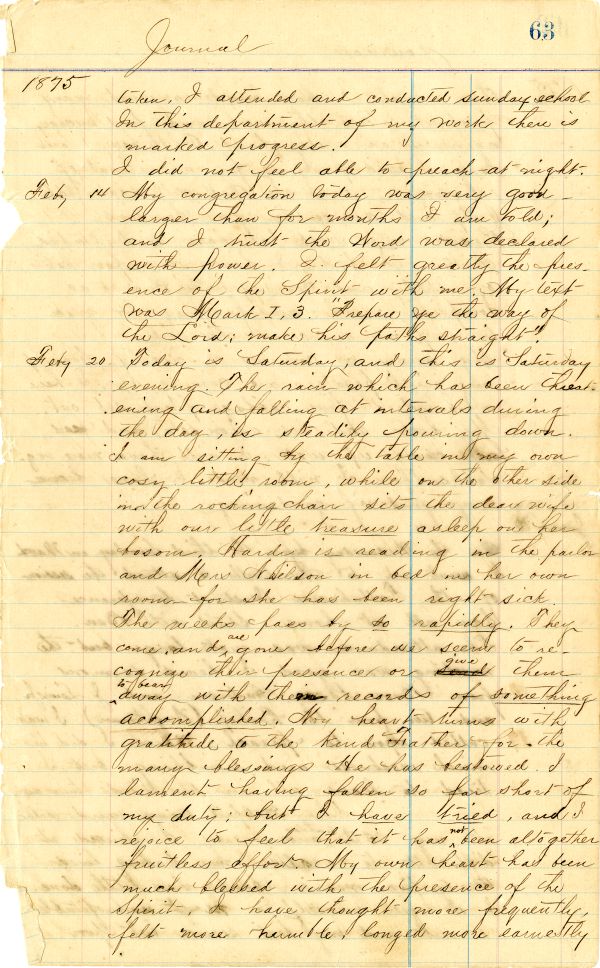 63
Journal
1875
taken, I attended and conducted Sunday school
In this department of my work there is
marked progress.
I did not feel able to preach at night.
Feby 14 My congregation today was very good
larger than for months I am told;
and I trust the Word was declared
with power. I felt greatly the pres-
ence of the Spirit with me. My text
was Mark I, 3. "Prepare ye the way of
the Lord; make his paths straight."
Feby 20 Today is Saturday, and this is Saturday
evening. The rain which has been threat-
ening and falling at intervals during
the day, is steadily pouring down.
I am sitting by the table in my own
cosy little room, while on the other side
in the rocking chair sits the dear wife
with our little treasure asleep on her
bosom. Hardi is reading in the parlor
and Mers Wilson in bed in her own
room for she has been right sick.
The weeks pass by so rapidly. They
come and are gone before we seem to re-
cognize their presence or send give them
to bear away with them records of something
accomplished. My heart turns with
gratitude to the kind Father for the
many blessings He has bestowed. I
lament having fallen so far short of
my duty; but I have tried, and I
rejoice to feel that it has not been altogether
fruitless effort. My own heart has been
much blessed with the presence of the
Spirit. I have thought more frequently,
felt more humble, longed more earnestly